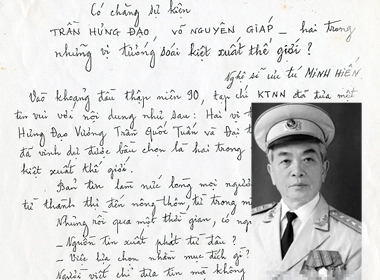 Có chăng sự kiện
TRẦN HƯNG ĐẠO, VÕ NGUYÊN GIÁP _ hai trong
những vị tướng soái kiệt xuất thế giới?
Nghệ sĩ ưu tú MINH HIỀN
Vào khoảng đầu thập niên 90, tạp chí KTNN đã đưa một
tin vui với nội dung như sau: Hai vị t
Hưng Đạo Vương Trần Quốc Tuấn và Đại t
đã vinh dự được bầu chọn là hai trong
kiệt xuất thế giới.
Bản tin làm nức lòng mọi người
từ thành thị đến nông thôn, từ trong n
Nhưng rồi qua một thời gian, có ng
_ Nguồn tin xuất phát từ đâu?
_ Việc lựa chọn nhằm mục đích gì?
Người viết chỉ đưa tin mà không